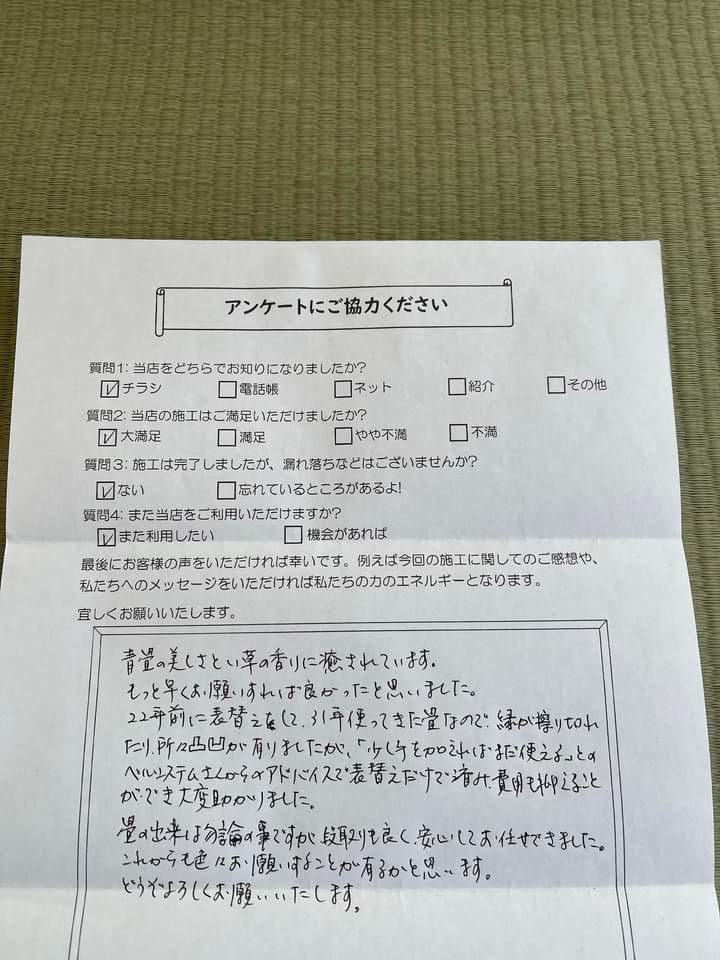 アンケートにご協力ください
質問1: 当店をどちらでお知りになりましたか?
チラシ 電話帳 ネット 紹介 その他
質問2: 当店の施工はご満足いただけましたか?
大満足 満足 やや不満 不満
質問3: 施工は完了しましたが、漏れ落ちなどはございませんか?
ない 忘れているところがあるよ!
質問4: また当店をご利用いただけますか?
また利用したい 機会があれば
最後にお客様の声をいただければ幸いです。例えば今回の施工に関してのご感想や、
私たちへのメッセージをいただければ私たちの力のエネルギーとなります。
宜しくお願いいたします。
青畳の美しさとい草の香りに癒されています。
もっと早くお願いすれば良かったと思いました。
22年前に表替えをして、31年使ってきた畳なので、縁が擦り切れ
たり、所々凸凹が有りましたが、「少し手を加えればまだ使える」との
ベルシステムさんからのアドバイスで表替えだけで済み、費用も抑えること
ができ大変助かりました。
畳の出来は勿論の事ですが段取りも良く、安心してお任せできました。
これからも色々お願いすることが有るかと思います。
どうぞよろしくお願いいたします。